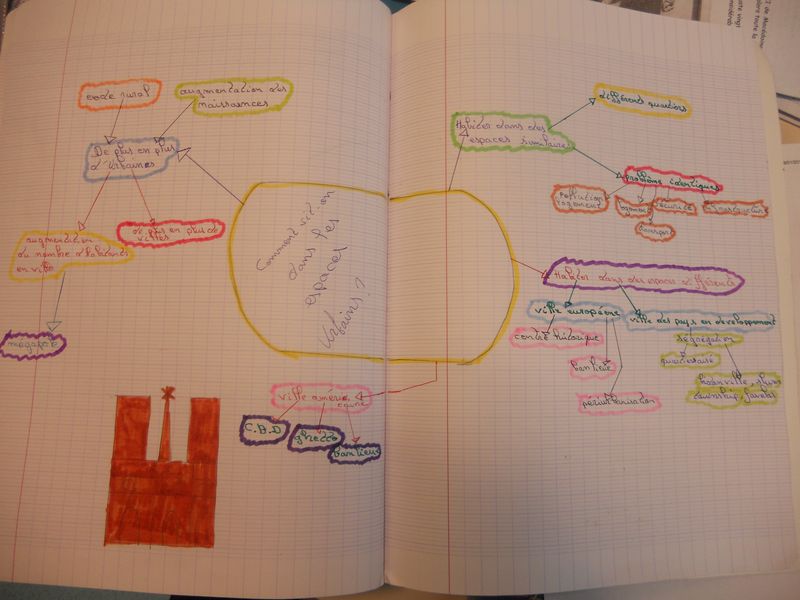 exode rural
augmentation des
naissances
De plus en plus
d'Urbaines
augmentation
du nombre d'habitants
en ville
de plus en plus de
villes
mégapole
Comment vit-on
dans les
espaces
Urbains ?
Habiter dans des
espaces similaires
différents quartiers
problème identiques
Pollution
logement
sécurité
transport
Habiter dans des espaces différents
ville européenne
centre historique
banlieue
périurbanisation
ville des pays en développement
ségrégation
bidonville, slums
township, favelas
ville améri
caine
C.B.D
ghetto
Banlieue